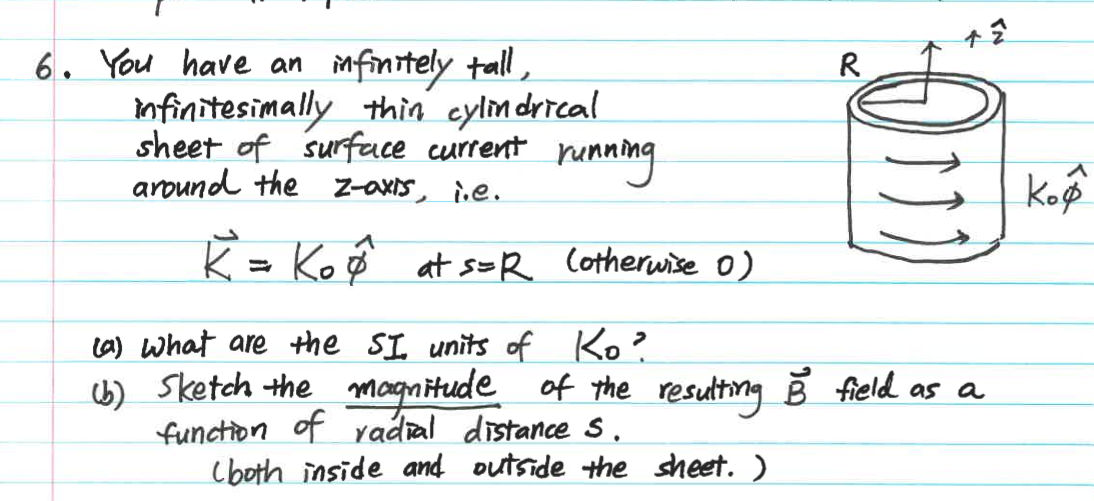 6. You have an infinitely tall,
infinitesimally thin cylindrical
sheet of surface current running
around the z-axis, i.e.
K⃗ = K₀ φ̂ at s=R (otherwise 0)
R
↑ ẑ
K₀φ̂
(a) What are the SI units of K₀?
(b) Sketch the magnitude of the resulting B⃗ field as a
function of radial distance s.
(both inside and outside the sheet.)